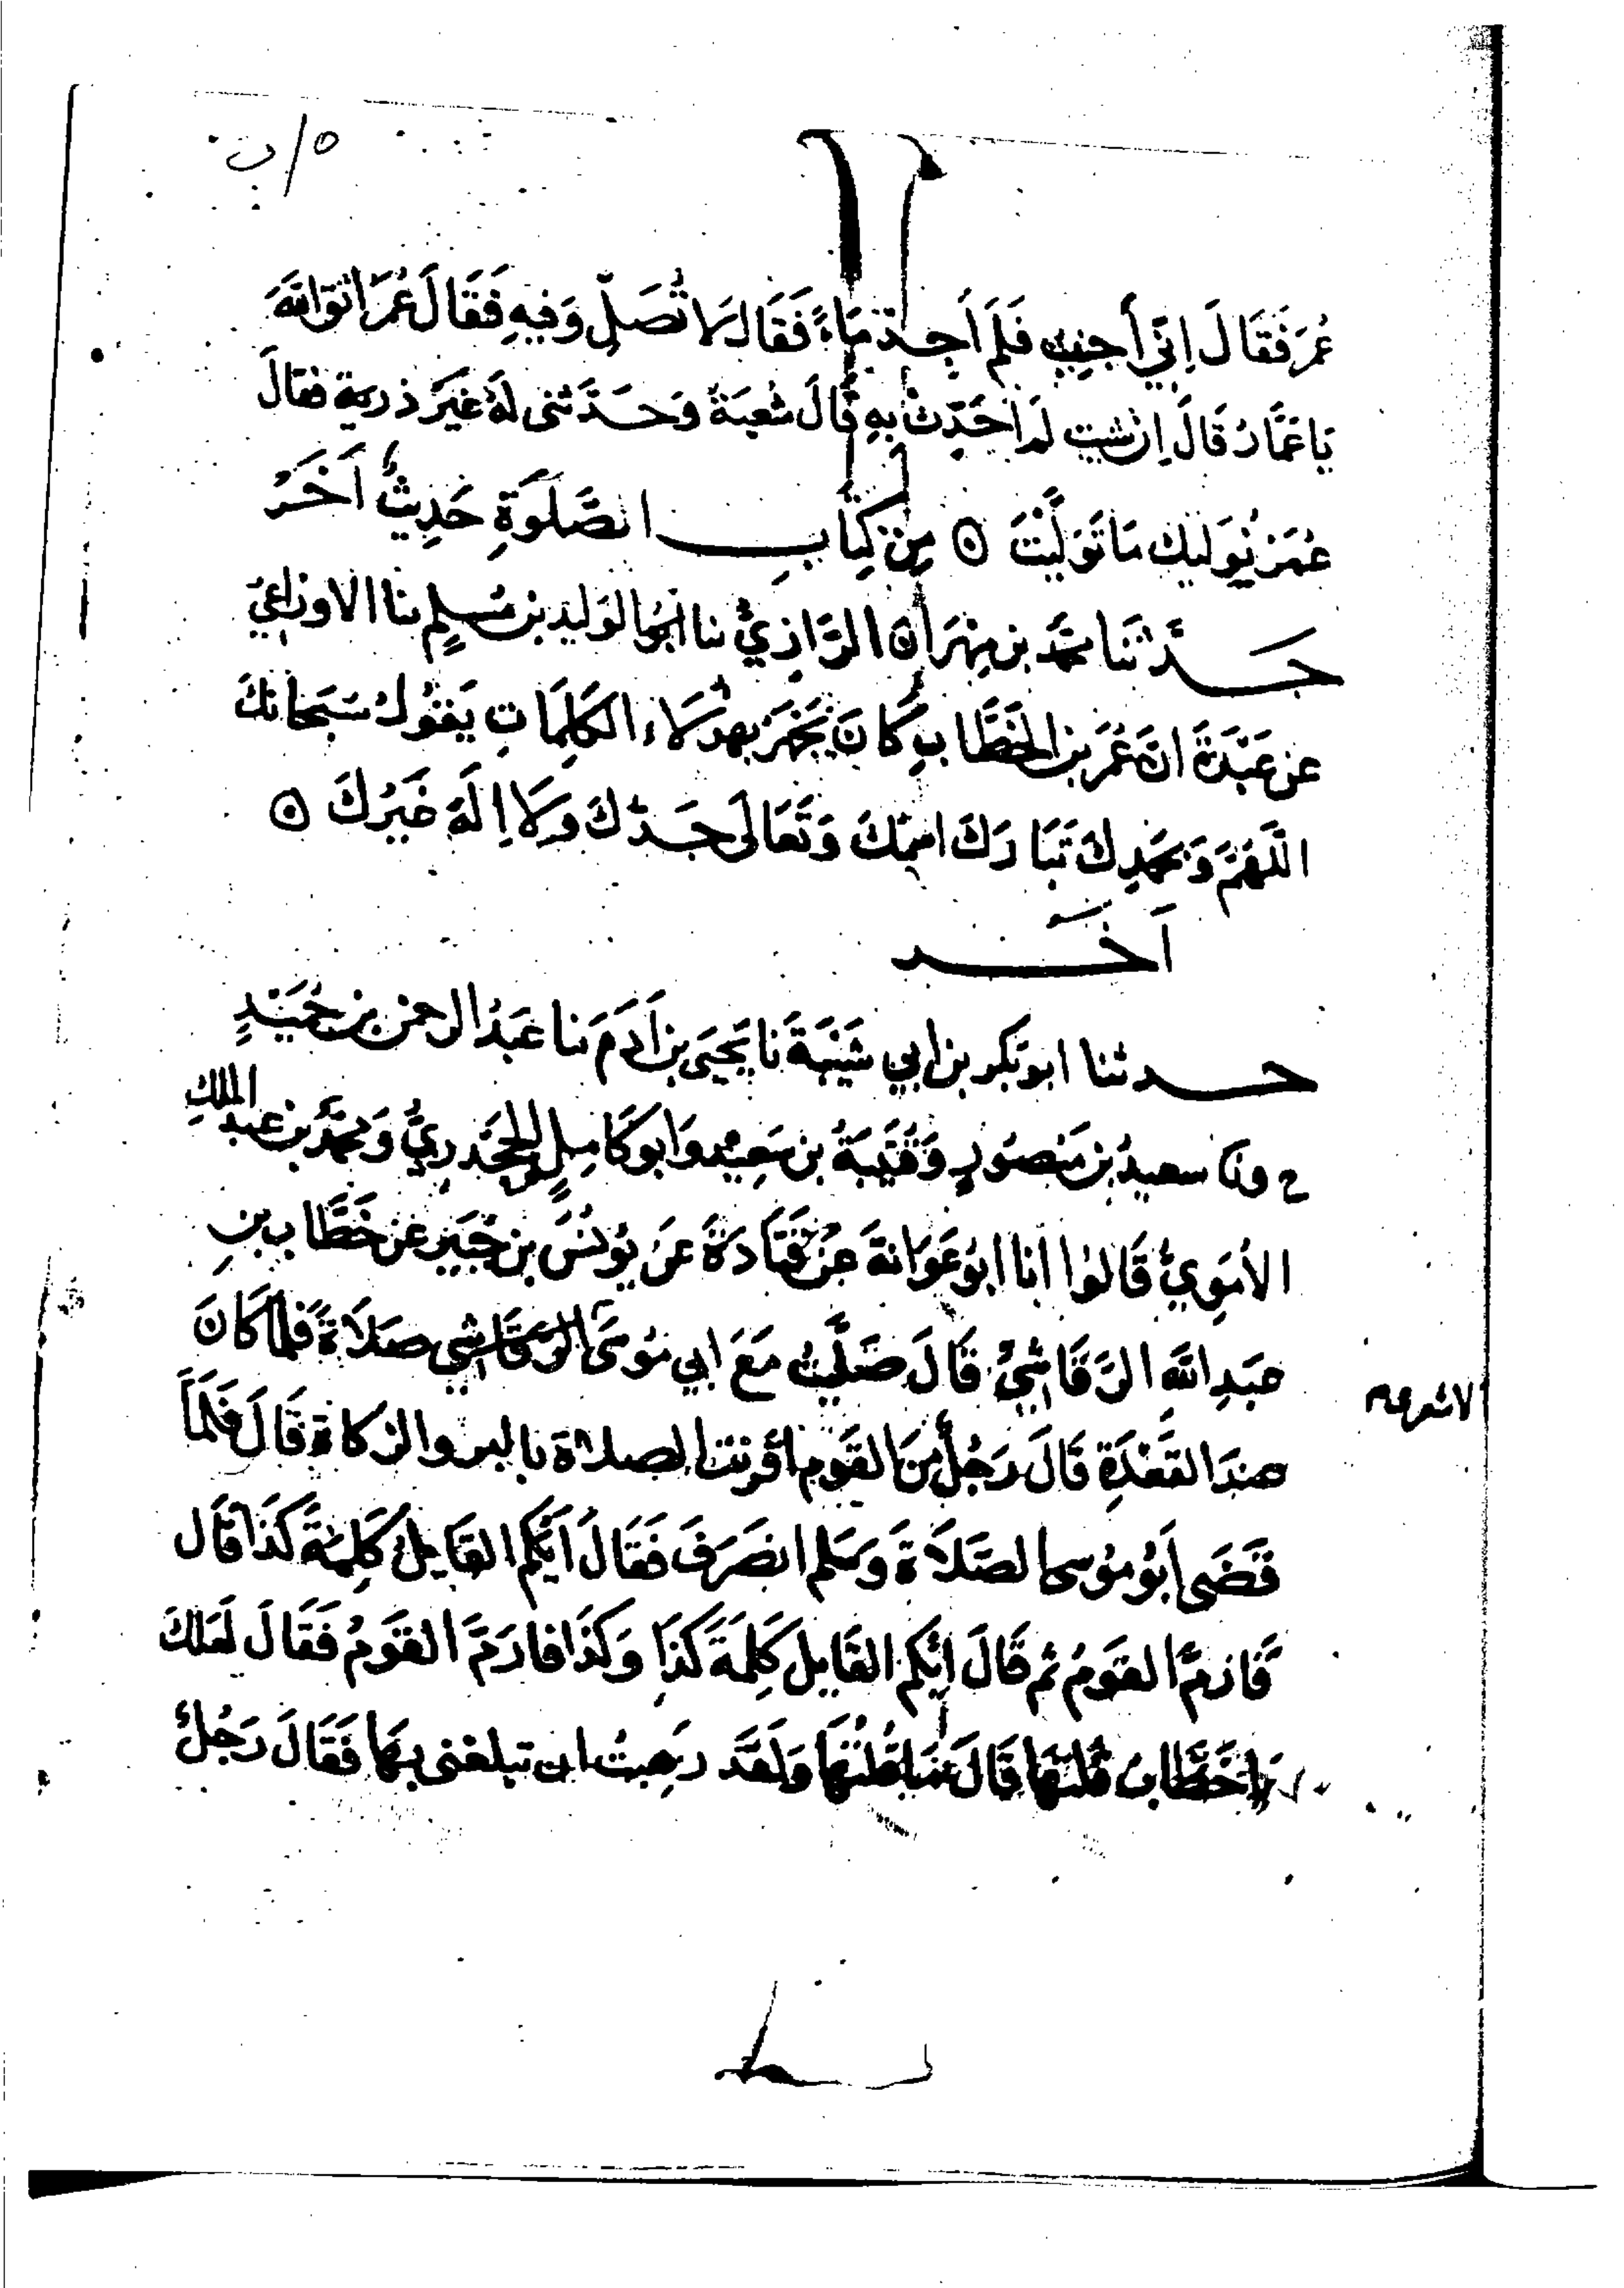 ٥/ب
عُمَرَ فَقَالَ اِنِّي أَجْنَبْتُ فَلَمْ أَجِدْ مَاءً فَقَالَ لَا تُصَلِّ وَفِيهِ فَقَالَ عُمَرُ اتَّقِ اللَّهَ
يَا عَمَّارُ قَالَ اِن شيت لَمْ اُحَدِّثْ بِهِ قَالَ شُعْبَةُ وَحَدَّثَنى لَهُ غَيْرَ ذريه فقَالَ
عُمَرُ نُوَلِيكَ مَا تَوَلَّيْتَ ۞ مِنْ كِتَابِ الصَّلَوةِ حَدِيثٌ آخَرُ
حَدَّثَنَا مُحَمَّدُ بن مِهْرَانَ الرَّازِيُّ نا الوَلِيد بن مُسلِمٍ نا الاوزاعِيّ
عن عَبْدَةَ انَّ عُمَرَ بن الخَطَّابِ كَانَ يَجْهَرُ بهؤلَاء الكَلِمَاتِ يَقُولُ سُبْحَانكَ
اللَّهُمَّ وَبِحَمْدِكَ تَبَارَكَ اسْمُكَ وَتَعَالَى جَدُّكَ وَلَا اِلَهَ غَيْرُكَ ۞
آخَر
حدثنا ابو بَكر بن ابي شَيْبَةَ نَا يَحْيَى بن آدَمَ نا عَبْدُ الرحمن بن حُمَيْدٍ
ح ونا سعيدُ بن مَنصُورٍ وَقُتَيْبَةُ بن سَعِيدٍ وابو كَامِلٍ الجَحْدَرِيُّ وَمُحَمَّدُ بن عبد الملك
الأُمَوِيُّ قَالوُا انا ابُو عَوَانةَ عَنْ قَتَادَةَ عَن يُونُسَ بن جُبَيرٍ عَن حَطَّاب بنِ
عَبْدِ اللَّهِ الرَّقَاشِيُّ قَالَ صَلَّيْتُ مَعَ ابي مُوسَى الرَّقَاشِي صَلَاةً فَلَمَّا كَانَ
الاشعرى
عِندَ القَعْدَةِ قَالَ رَجُلٌ مِنَ القَوْمِ أُقرنت الصلاة بالبر والزكاة قَالَ فَلَمَّا
قَضَى أَبُو مُوسى الصَّلَاةَ وَسَلم انصَرَفَ فَقَالَ أَيُّكُم القَايلُ كَلِمَةً كَذَا قَال
فَارَمَّ القَوْمُ ثم قَالَ ايُّكُم القَايلُ كَلِمَةَ كَذَا وَكَذَا فارَمَّ القَوْمُ فَقَالَ لَعَلكَ
يا حَطَّاب قُلتَهَا قَالَ مَا قُلْتُهَا وَلَقَد رَهِبتُ ان تبلغنى بِهَا فَقَالَ رَجُلٌ